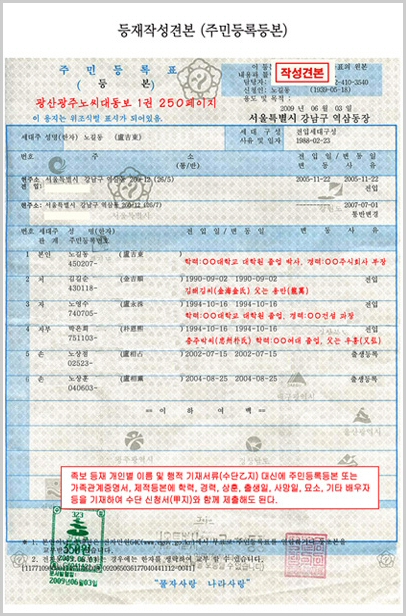 등재작성견본 (주민등록등본)
주 민 등 록 표
( 등 본 )
작성견본
광산광주노씨대동보 1권 250페이지
이 용지는 위조식별 표시가 되어있음.
용도 및 목적 :
2009 년 06 월 03 일
서울특별시 강남구 역삼동장
세대주 성명(한자) 노길동 (盧吉東)
세 대 구 성
사유 및 일자
전입세대구성
1988-02-23
번호 주 소
(통/반)
전 입 일 / 변 동 일
변 동 사 유
현주소 서울특별시 강남구 역삼동 (26/5)
전 입
2005-11-22 2005-11-22
전입
현주소: 서울특별시 강남구 역삼동 (26/7)
2007-07-01
통반변경
번호 세대주 성 명(한자)
관 계 주민등록번호
전 입 일 / 변 동 일
1 본인 노길동 (盧吉東)
450207-
학력:○○대학교 대학원 졸업 박사, 경력:○○주식회사 부장
2 처 김길순 (金吉順) 1990-09-02 1990-09-02 전입
430118-
김해김씨(金海金氏) 父는 용만(龍萬)
3 자 노영수 (盧永洙) 1994-10-16 1994-10-16 전입
740705-
학력:○○대학교 대학원 졸업, 경력:○○건설 과장
4 자부 박은희 1994-10-16 1994-10-16 전입
751103-
충주박씨(忠州朴氏) 학력:○○여대 졸업, 父는 우홍
5 손 노상점 (盧相占) 2002-07-15 2002-07-15 출생등록
02523-
6 손 노상훈 2004-08-25 2004-08-25 출생등록
040603-
== 이 하 여 백 ==
족보 등재 개인별 이름 및 행적 기재서류(수단乙지) 대신에 주민등록등본 또는
가족관계증명서, 제적등본에 학력, 경력, 상훈, 출생일, 사망일, 묘소, 기타 배우자
등을 기재하여 수단 신청서(甲지)와 함께 제출해도 된다.
"물자사랑 나라사랑"